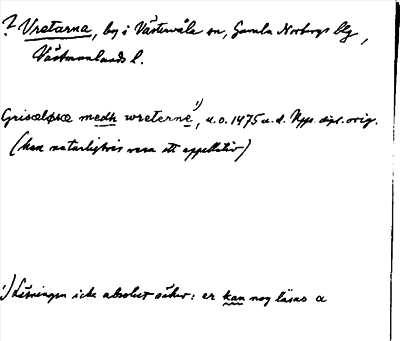 ? Vretarna, by i Västervåla sn, Gamla Norbergs blg,
Västmanlands l.
Griscløsæ medh wreterne¹), u.o. 1475 u.d. Kyp. dipl. orig.
(kan naturligtvis vara ett appellativ)
¹) Läsningen icke absolut säker: er kan nog läsas a